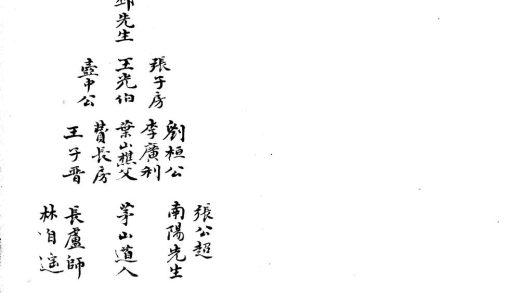 先生
張子房
王光伯
壺中公
劉桓公
李廣利
葉山樵父
費長房
王子晋
張公超
南陽先生
茅山道人
長盧師
林